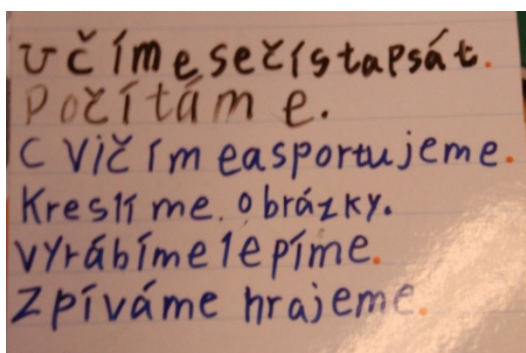 Učímesečístapsát.
Počítám e.
C Vičím easportujeme.
Kreslíme. obrázky.
vyrábímelepíme.
Zpíváme hrajeme.